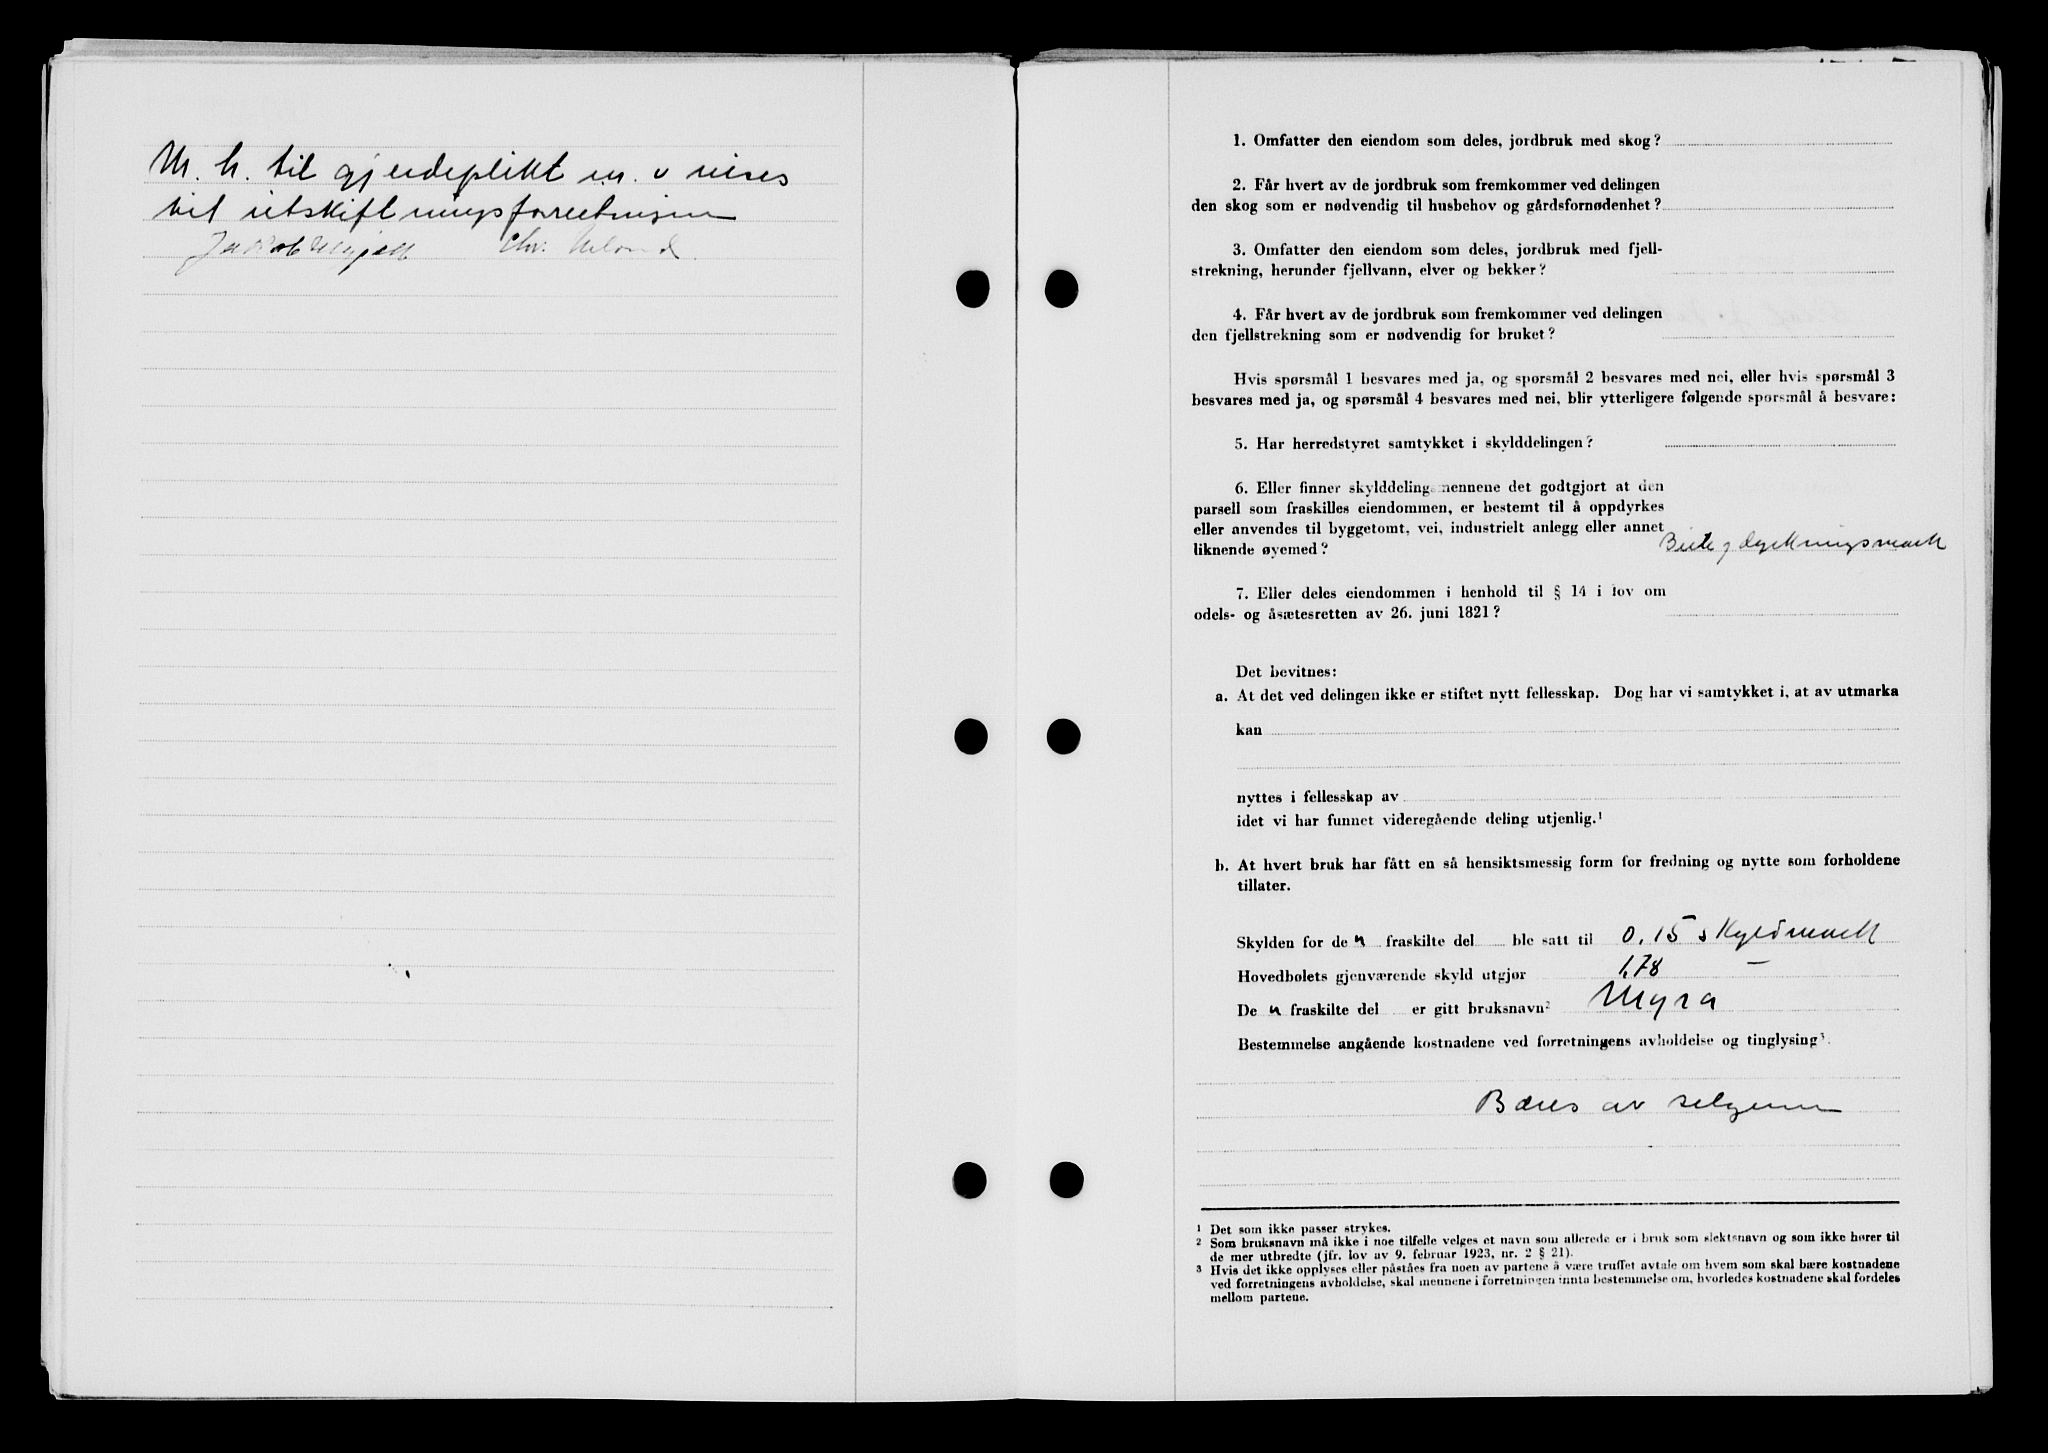 M. h. til gjerdeplikt m. v vises
til utskiftningsforretningen
Chr.
1. Omfatter den eiendom som deles, jordbruk med skog?
2. Får hvert av de jordbruk som fremkommer ved delingen
den skog som er nødvendig til husbehov og gårdsfornødenhet?
3. Omfatter den eiendom som deles, jordbruk med fjell-
strekning, herunder fjellvann, elver og bekker?
4. Får hvert av de jordbruk som fremkommer ved delingen
den fjellstrekning som er nødvendig for bruket?
Hvis spørsmål 1 besvares med ja, og spørsmål 2 besvares med nei, eller hvis spørsmål 3
besvares med ja, og spørsmål 4 besvares med nei, blir ytterligere følgende spørsmål å besvare:
5. Har herredstyret samtykket i skylddelingen?
6. Eller finner skylddelingsmennene det godtgjort at den
parsell som fraskilles eiendommen, er bestemt til å oppdyrkes
eller anvendes til byggetomt, vei, industrielt anlegg eller annet
liknende øyemed? Beite og dyrkningsmark
7. Eller deles eiendommen i henhold til § 14 i lov om
odels- og åsætesretten av 26. juni 1821?
Det bevitnes:
a. At det ved delingen ikke er stiftet nytt fellesskap. Dog har vi samtykket i, at av utmarka
kan
nyttes i fellesskap av
idet vi har funnet videregående deling utjenlig.¹
b. At hvert bruk har fått en så hensiktsmessig form for fredning og nytte som forholdene
tillater.
Skylden for de n fraskilte del ble satt til 0.15 skyldmark
Hovedbølets gjenværende skyld utgjør 1,78 —
De n fraskilte del er gitt bruksnavn² Myra
Bestemmelse angående kostnadene ved forretningens avholdelse og tinglysing³.
Bæres av selgeren
¹ Det som ikke passer strykes.
² Som bruksnavn må ikke i noe tilfelle velges et navn som allerede er i bruk som slektsnavn og som ikke hører til
de mer utbredte (jfr. lov av 9. februar 1923, nr. 2 § 21).
³ Hvis det ikke opplyses eller påståes fra noen av partene å være truffet avtale om hvem som skal bære kostnadene
ved forretningens avholdelse, skal mennene i forretningen innta bestemmelse om, hvorledes kostnadene skal fordeles
mellom partene.